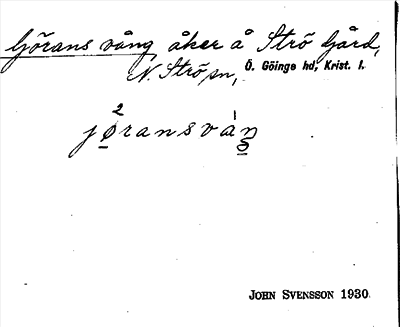 Görans vång, åker å Strö Gård,
N. Strö sn, Ö. Göinge hd, Krist. l.
2
jøransvàn̠
JOHN SVENSSON 1930.